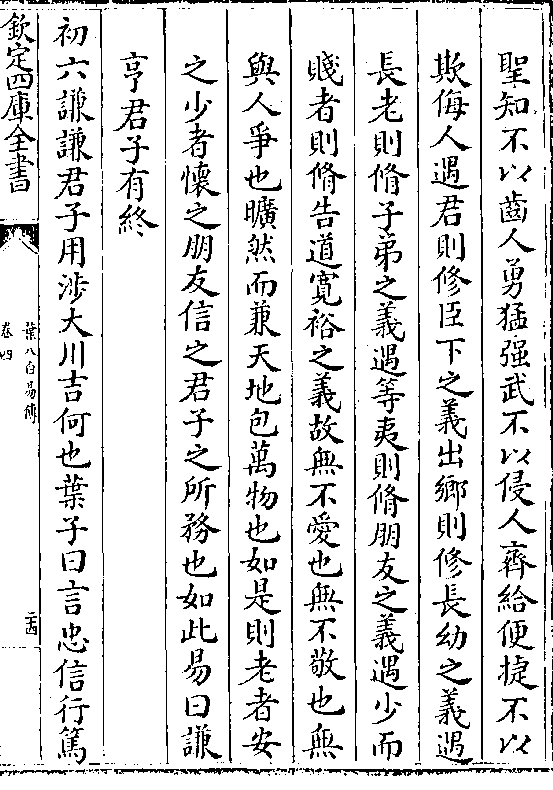 聖知不以齒人勇猛强武不以侵人齊給便捷不以
欺侮人遇君則修臣下之義出鄉則修長幼之義遇
長老則脩子弟之義遇等夷則脩朋友之義遇少而
賤者則脩告道寛裕之義故無不愛也無不敬也無
與人爭也曠然而兼天地包萬物也如是則老者安
之少者懷之朋友信之君子之所務也如此易曰謙
亨君子有終
初六謙謙君子用涉大川吉何也葉子曰言忠信行篤
欽定四庫全書
葉八白易傳
卷四
二十四